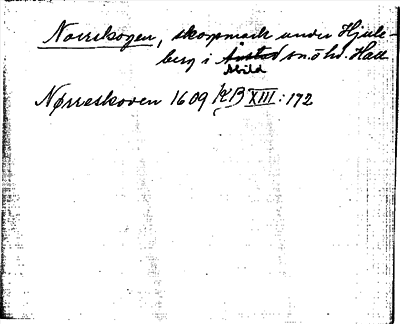 Norrskogen, skogsmark under Hjule-
berg i Årstad sn. o hd. Hall.
Abild
Nørreskoven 1609 KB XIII: 172